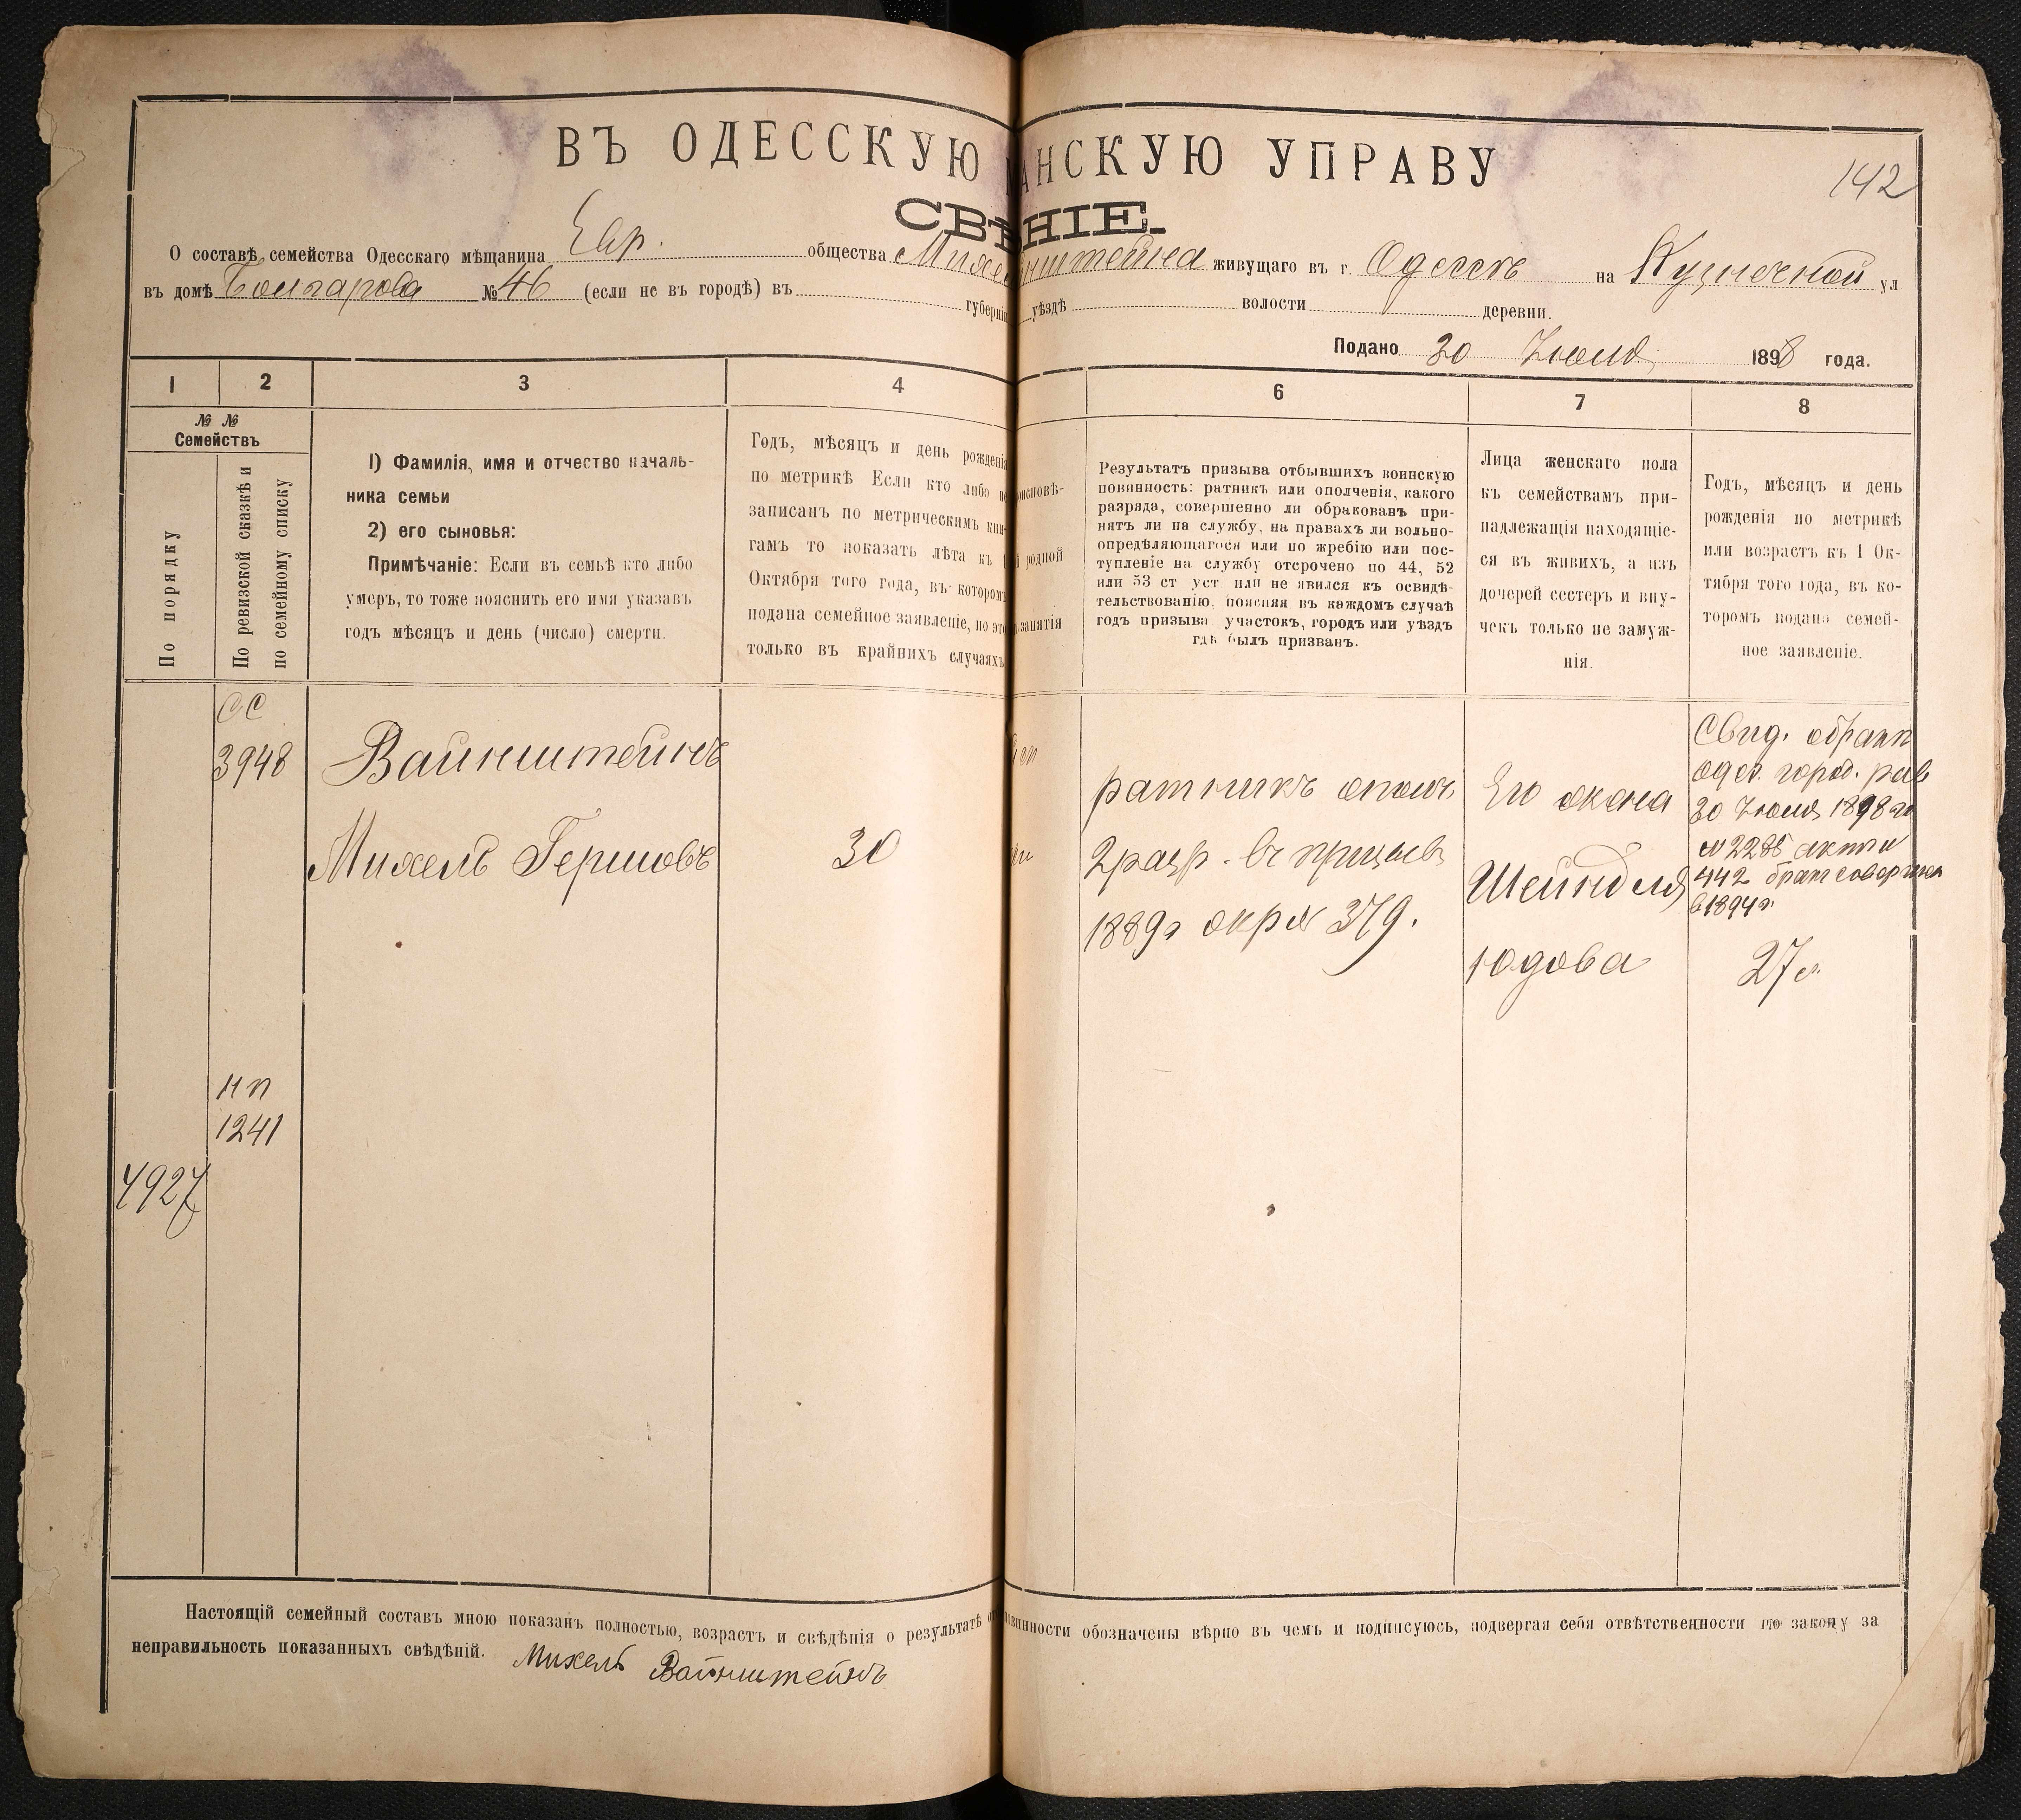 ВЪ ОДЕССКУЮ АНСКУЮ УПРАВУ
142
СВѢНІЕ.
О составѣ семейства Одесскаго мѣщанина Евр. общества Михе нштейна живущаго въ г. Одессѣ на Кузнечной ул
въ домѣ Болгарова № 46 (если не въ городѣ) въ губерніи уѣздѣ волости деревни.
Подано 30 Іюля 1898 года.
1 2 3 4 6 7 8
№ № Семействъ
По порядку
По ревизской сказкѣ и
по семейному списку
1) Фамилія, имя и отчество началь-
ника семьи
2) его сыновья:
Примѣчаніе: Если въ семьѣ кто либо
умеръ, то тоже пояснить его имя указавъ
годъ мѣсяцъ и день (число) смерти.
Годъ, мѣсяцъ и день рожденія
по метрикѣ Если кто либо не
записанъ по метрическимъ кни-
гамъ то показать лѣта къ 1
Октября того года, въ которомъ
подана семейное заявленіе, но это
только въ крайнихъ случаяхъ
оисповѣ-
родной
занятія
Результатъ призыва отбывшихъ воинскую
повинность: ратникъ или ополченія, какого
разряда, совершенно ли обракованъ при-
нятъ ли на службу, на правахъ ли вольно-
опредѣляющагося или по жребію или пос-
тупленіе на службу отсрочено по 44, 52
или 53 ст уст. или не явился къ освидѣ-
тельствованію, поясняя въ каждомъ случаѣ
годъ призыва участокъ, городъ или уѣздъ
гдѣ былъ призванъ.
Лица женскаго пола
къ семействамъ при-
надлежащія находящіе-
ся въ живихъ, а изъ
дочерей сестеръ и вну-
чекъ только не замуж-
нія.
Годъ, мѣсяцъ и день
рожденія по метрикѣ
или возрастъ къ 1 Ок-
тября того года, въ ко-
торомъ подано семей-
ное заявленіе.
СС
3948
Вайнштейнъ
Михель Гершовъ
30
ратникъ ополч.
2 разр. въ призывъ
1889г окр № 379.
Его жена
Шейндля
Юдова
Свид. о брак
Одес. город. рав
30 Іюля 1898 го
442 брак соверше
в 1894 г.
27 л.
нп
1241
4927
Настоящій семейный составъ мною показанъ полностью, возрастъ и свѣдѣнія о результатѣ о повинности обозначены вѣрно въ чемъ и подписуюсь, подвергая себя отвѣтственности по закону за
неправильность показанныхъ свѣдѣній. Михель Вайнштейнъ